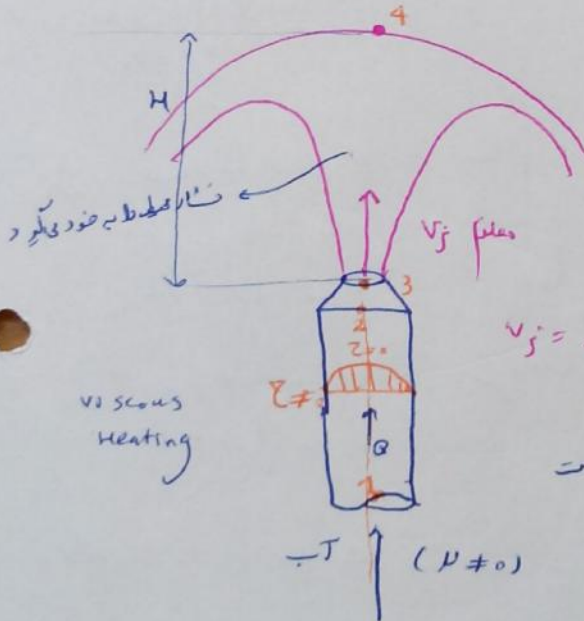 4
H
فشار محیط را به خود می‌گیرد
معلوم Vj
3
Vj =
2
τ=0
τ ≠
viscous
Heating
Q
1
آب
(μ ≠ 0)